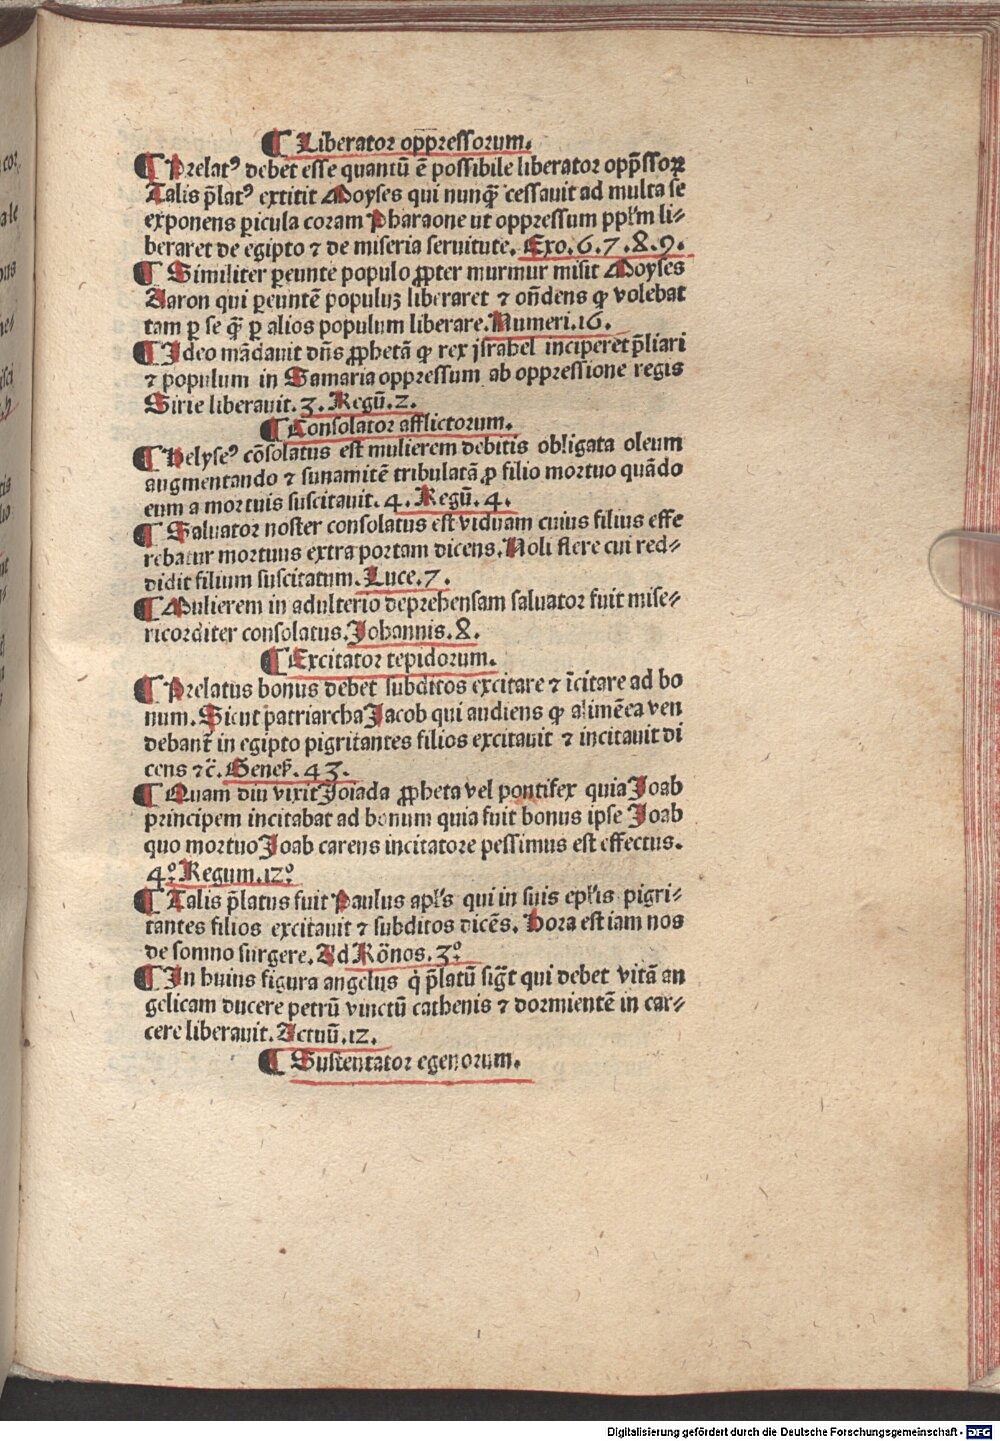 ¶ Liberator oppressorum.
¶ Prelatꝰ debet esse quantū ē possibile liberator opp̄ssoꝝ
Talis p̄latꝰ extitit Moyses qui nunq̄ cessauit ad multa se
exponens ꝑicula coram Pharaone ut oppressum ppl̄m li⸗
beraret de egipto ⁊ de miseria seruitute. Exo.6.7.8.9.
¶ Similiter ꝑeunte populo ꝓpter murmur misit Moyses
Aaron qui ꝑeuntē populuꝫ liberaret ⁊ on̄dens ꝙ volebat
tam ꝑ se q̄ ꝑ alios populum liberare. Numeri.16.
¶ Ideo mādauit dn̄s ꝓphetā ꝙ rex jsrahel inciperet p̄liari
⁊ populum in Samaria oppressum ab oppressione regis
Sirie liberauit. 3. Regū. 2.
¶ Consolator afflictorum.
¶ Helyseꝰ cōsolatus est mulierem debitis obligata oleum
augmentando ⁊ sunamitē tribulatā ꝓ filio mortuo quādo
eum a mortuis suscitauit. 4. Regū. 4.
¶ Saluator noster consolatus est viduam cuius filius effe
rebatur mortuus extra portam dicens. Noli flere cui red⸗
didit filium suscitatum. Luce.7.
¶ Mulierem in adulterio deprehensam saluator fuit mise⸗
ricorditer consolatus. Johannis.8.
¶ Excitator tepidorum.
¶ Prelatus bonus debet subditos excitare ⁊ īcitare ad bo
num. Sicut patriarcha Jacob qui audiens ꝙ alimēta ven
debant̄ in egipto pigritantes filios excitauit ⁊ incitauit di
cens ⁊c̄. Genes̄. 43.
¶ Quam diu vixit Joiada ꝓpheta vel pontifex quia Joab
principem incitabat ad bonum quia fuit bonus ipse Joab
quo mortuo Joab carens incitatore pessimus est effectus.
4º. Regum.12º
¶ Talis p̄latus fuit Paulus apl̄s qui in suis epl̄is pigri⸗
tantes filios excitauit ⁊ subditos dicēs. Hora est iam nos
de somno surgere. Ad Rōnos. 3º
¶ In huius figura angelus q̇ p̄latū siḡt qui debet vitā an
gelicam ducere petrū vinctū cathenis ⁊ dormientē in car⸗
cere liberauit. Actuū.12.
¶ Sustentator egenorum.
Digitalisierung gefördert durch die Deutsche Forschungsgemeinschaft - DFG